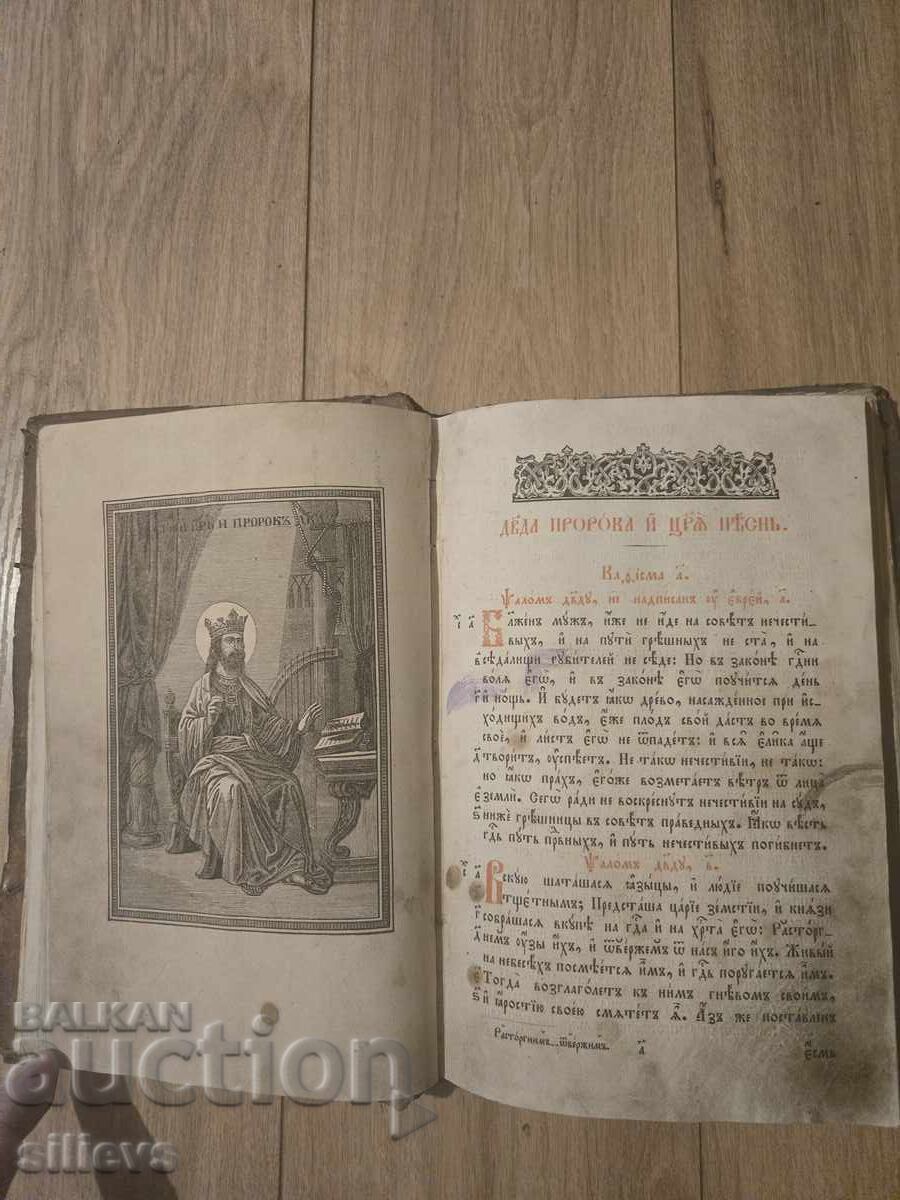 ЦРЬ И ПРОРОКЪ
ДВ҃ДА ПРОРО́КА И҆ ЦР҃Я̀ ПѢ́СНЬ.
Каѳі́сма а҃.
Ѱало́мъ дв҃ду, не надписан ᲂу҆ є҆врє́й, а҃.
Бл҃же́нъ мꙋжъ, и҆́же не и҆́де на совѣ́тъ нечести́-
выхъ, и҆ на пꙋти̑ грѣ́шныхъ не ста̀, и҆ на
сѣда́лищи гꙋби́телей не сѣ́де: Но въ зако́нѣ гдⷭ҇ни
во́ля є҆гѡ̀, и҆ въ зако́нѣ є҆гѡ̀ поꙋчи́тся де́нь
и҆ но́щь. И҆ бꙋ́детъ ꙗ҆́кѡ дре́во, насажде́нное при и҆с-
хо́дищихъ во́дъ, є҆́же пло́дъ сво́й да́стъ во вре́мя
своѐ, и҆ ли́стъ є҆гѡ̀ не ѿпаде́тъ: и҆ всѧ̑ є҆ли̑ка а҆́ще
твори́тъ, ᲂу҆спѣ́етъ. Не та́кѡ нечести́вїи, не та́кѡ:
но ꙗ҆́кѡ пра́хъ, є҆го́же возмета́етъ вѣ́тръ ѿ лица̀
землѝ. Сегѡ̀ ра́ди не воскре́снꙋтъ нечести́вїи на сꙋ́дъ,
нижѐ грѣ́шницы въ совѣ́тъ пра́ведныхъ. Ꙗ҆́кѡ вѣ́сть
гдⷭ҇ь пꙋ́ть пра́внꙑхъ, и҆ пꙋ́ть нечести́выхъ поги́бнетъ.
Ѱало́мъ дв҃дꙋ, в҃.
Вскꙋ́ю шата́шася ꙗ҆зы́цы, и҆ лю́дїе поꙋчи́шася
тще́тнымъ; Предста́ша ца́рїе зе́мстїи, и҆ кня́зи
собра́шася вкꙋ́пѣ на гдⷭ҇а и҆ на хрⷭ҇та̀ є҆гѡ̀: Расто́рг-
немъ ᲂу҆́зы и҆́хъ, и҆ ѿве́ржемъ ѿ на́съ и҆́го и҆́хъ. Живы́й
на небесѣ́хъ посмѣе́тся и҆̀мъ, и҆ гдⷭ҇ь порꙋга́ется и҆̀мъ.
Тогда̀ возглаго́летъ къ ни̑мъ гнѣ́вомъ свои́мъ,
и҆ ꙗ҆́ростїю свое́ю смяте́тъ ѧ҆̀. А҆́зъ же поста́вленъ
Расто́ргнимъ...ѿве́ржимъ.
а҃
є҆́смь
BALKAN
auction
silievs